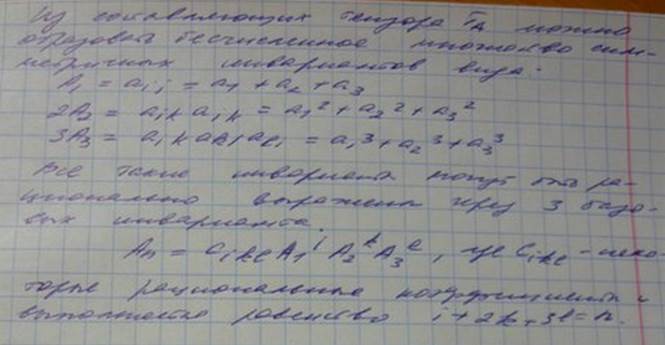 Из составляющих тензора T_A можно
образовать бесчисленное множество сим-
метричных инвариантов вида:
A₁ = a_{ii} = a₁ + a₂ + a₃
2A₂ = a_{ik} a_{ik} = a₁² + a₂² + a₃²
3A₃ = a_{ik} a_{kl} a_{li} = a₁³ + a₂³ + a₃³
Все такие инварианты могут быть ра-
ционально выражены через 3 базо-
вых инварианта.
Aₙ = C_{ikl} A₁^i A₂^k A₃^l, где C_{ikl} - неко-
торые рациональные коэффициенты и
выполняется равенство i + 2k + 3l = n.